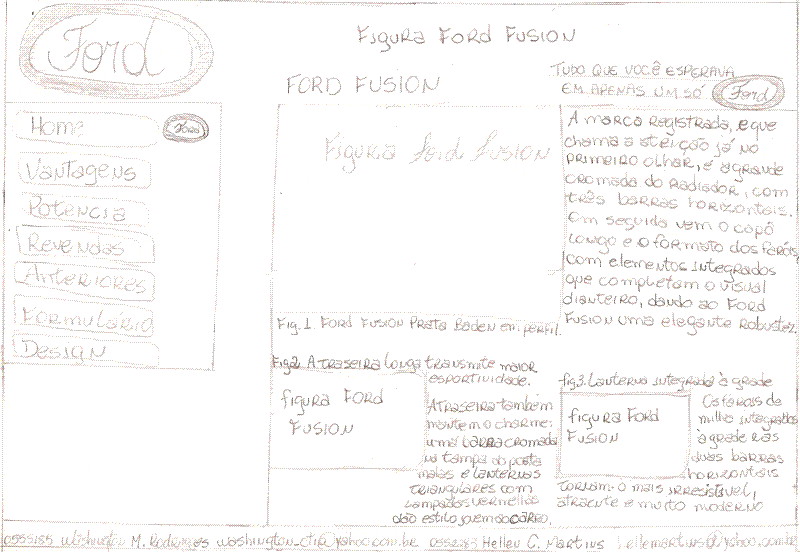 Ford
Figura Ford Fusion
FORD FUSION
TUDO QUE VOCÊ ESPERAVA
EM APENAS UM SÓ
Ford
Home
Ford
Vantagens
Potencia
Revendas
Anteriores
Formulário
Design
Figura Ford Fusion
A marca registrada, e que
chama a atenção já no
primeiro olhar, é a grade
cromada do radiador, com
três barras horizontais.
Em seguida vem o capô
longo e o formato dos faróis,
com elementos integrados
que completam o visual
dianteiro, dando ao Ford
Fusion uma elegante robustez.
Fig.1 Ford Fusion Prata Baden em perfil.
Fig2. A traseira longa transmite maior
esportividade.
figura Ford
Fusion
A traseira também
mantem o charme:
uma barra cromada
na tampa do porta
malas e lanternas
triangulares com
lampadas vermelhas
dão estilo jovem ao carro.
fig3. Lanterna integrada à grade
figura Ford
Fusion
Os farois de
milha integrados
à grade nas
duas barras
horizontais
tornam o mais irresistivel,
atraente e muito moderno
Washington M. Rodrigues washington_cti@yahoo.com.br Hellen C. Martins